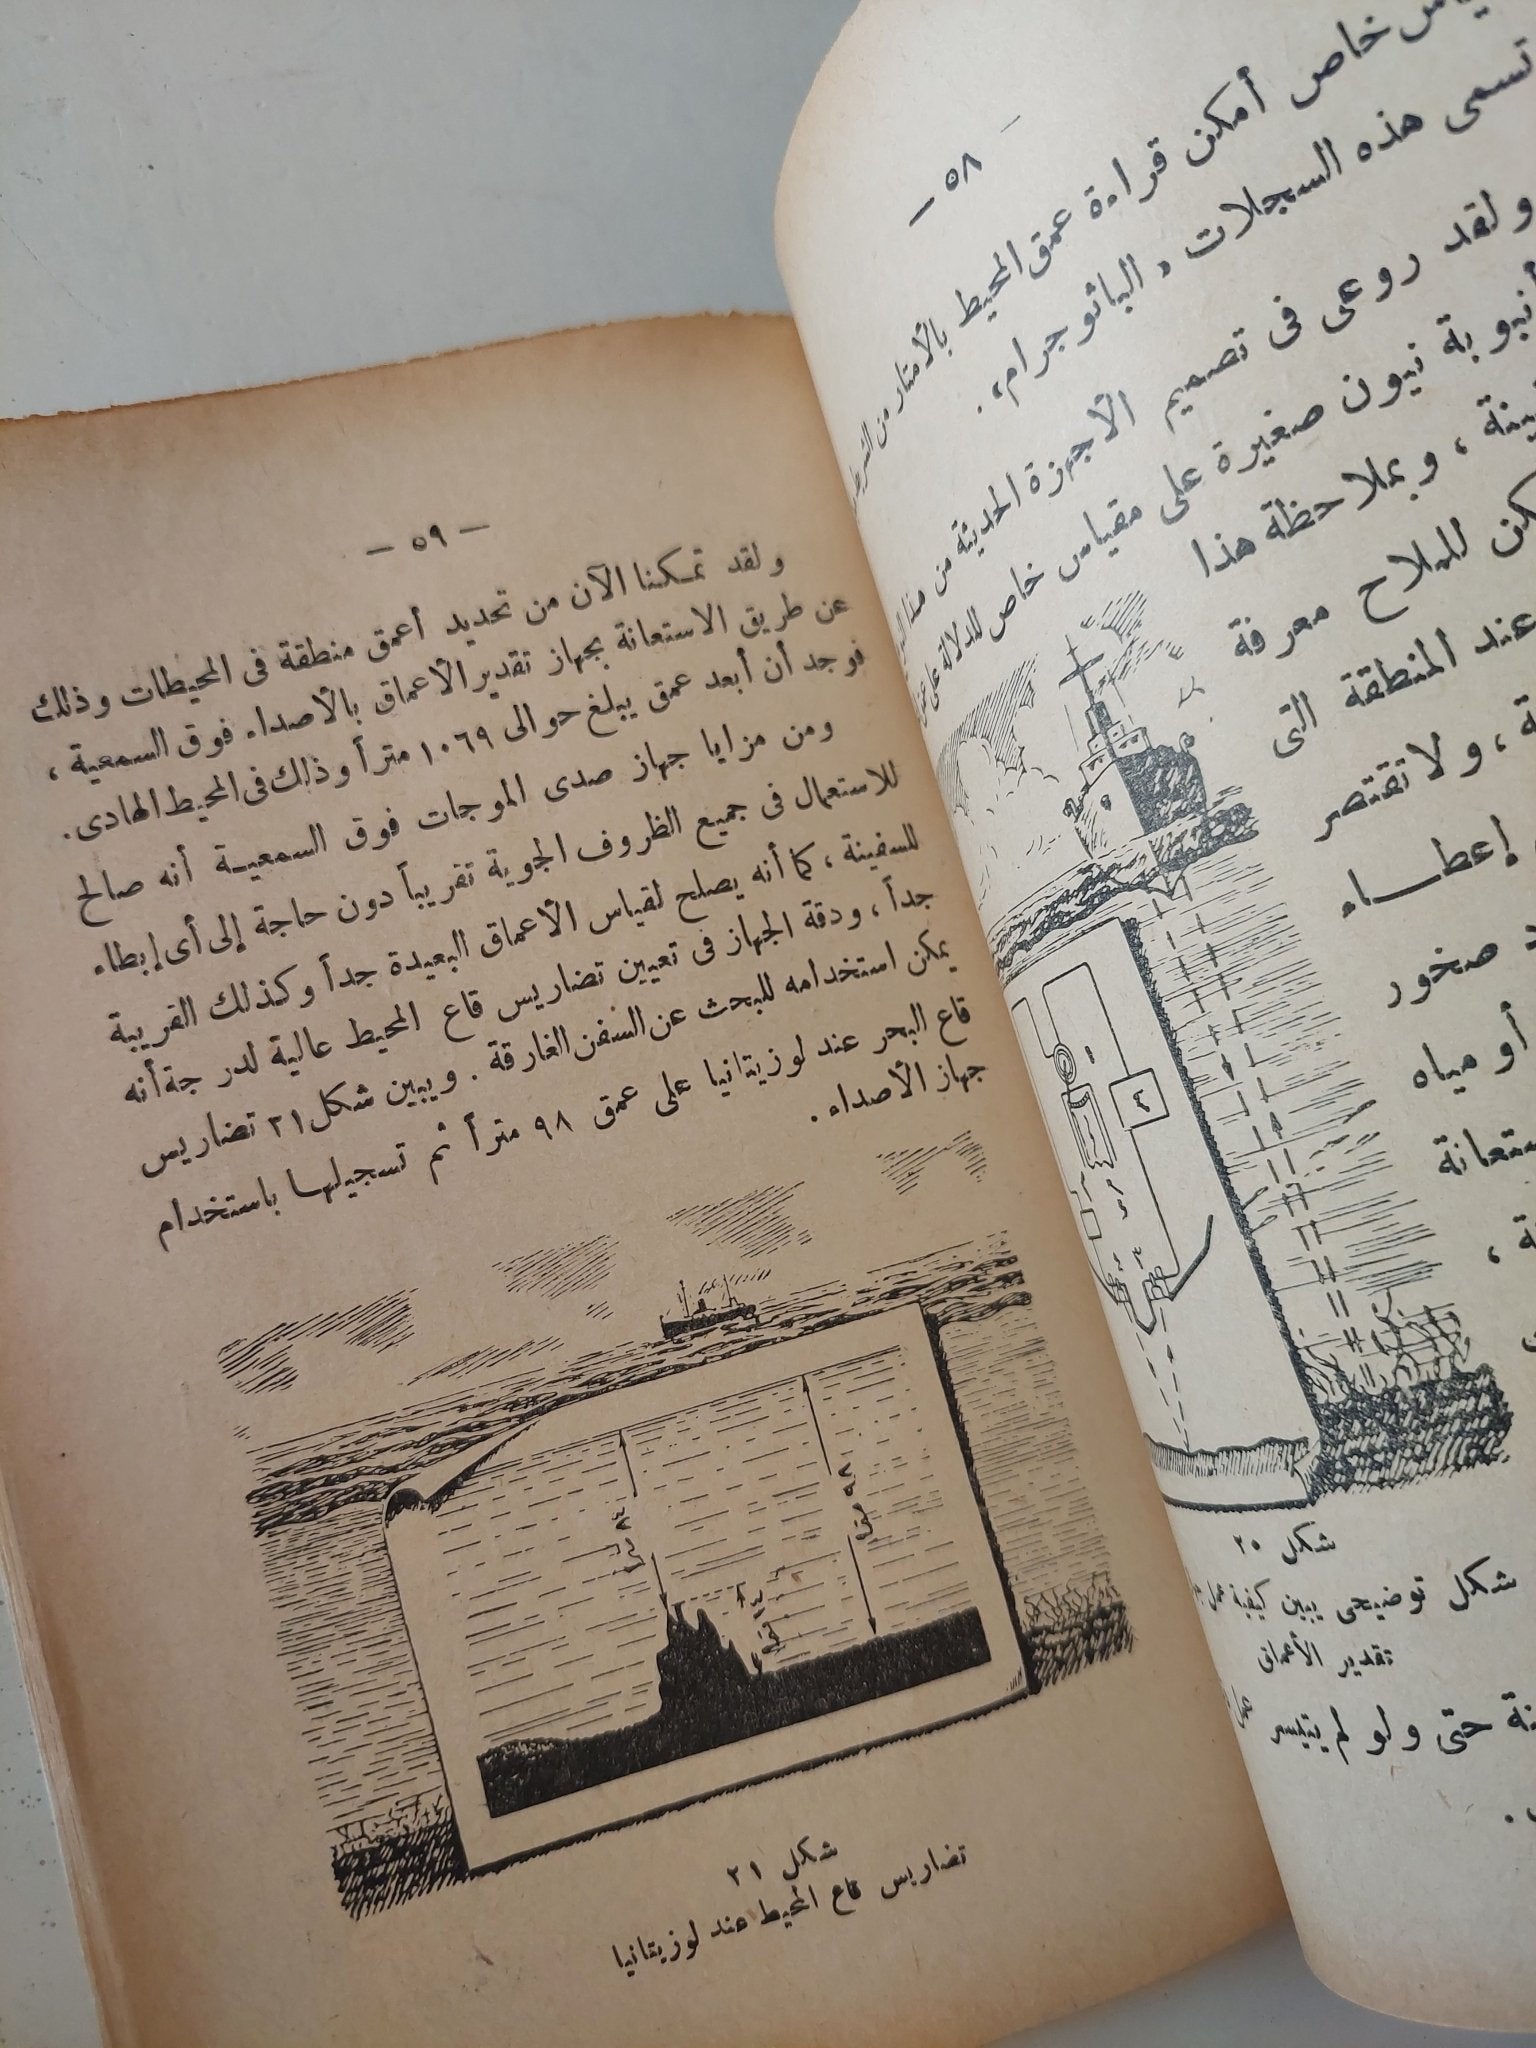 — ٥٨ —
خاص أمكن قراءة عمق المحيط بالأمتار من الشريط
تسمى هذه السجلات « الباثوجرام » .
ولقد روعى فى تصميم الأجهزة الحديثة من هذا
أنبوبة نيون صغيرة على مقياس خاص للدلالة على
، وبملاحظة هذا
للملاح معرفة
عند المنطقة التى
، ولا تقتصر
إعطاء
صخور
أو مياه
شكل ٢٥
شكل توضيحى يبين كيفية عمل
تقدير الأعماق
حتى ولو لم يتيسر
— ٥٩ —
ولقد تمكنا الآن من تحديد أعمق منطقة فى المحيطات وذلك
عن طريق الاستعانة بجهاز تقدير الأعماق بالأصداء فوق السمعية ،
فوجد أن أبعد عمق يبلغ حوالى ١٠٦٩ متراً وذلك فى المحيط الهادى .
ومن مزايا جهاز صدى الموجات فوق السمعية أنه صالح
للاستعمال فى جميع الظروف الجوية تقريباً دون حاجة إلى أى إبطاء
للسفينة ، كما أنه يصلح لقياس الأعماق البعيدة جداً وكذلك القريبة
جداً ، ودقة الجهاز فى تعيين تضاريس قاع المحيط عالية لدرجة أنه
يمكن استخدامه للبحث عن السفن الغارقة . ويبين شكل ٢١ تضاريس
قاع البحر عند لوزيتانيا على عمق ٩٨ متراً ثم تسجيلها باستخدام
جهاز الأصداء .
شكل ٢١
تضاريس قاع المحيط عند لوزيتانيا